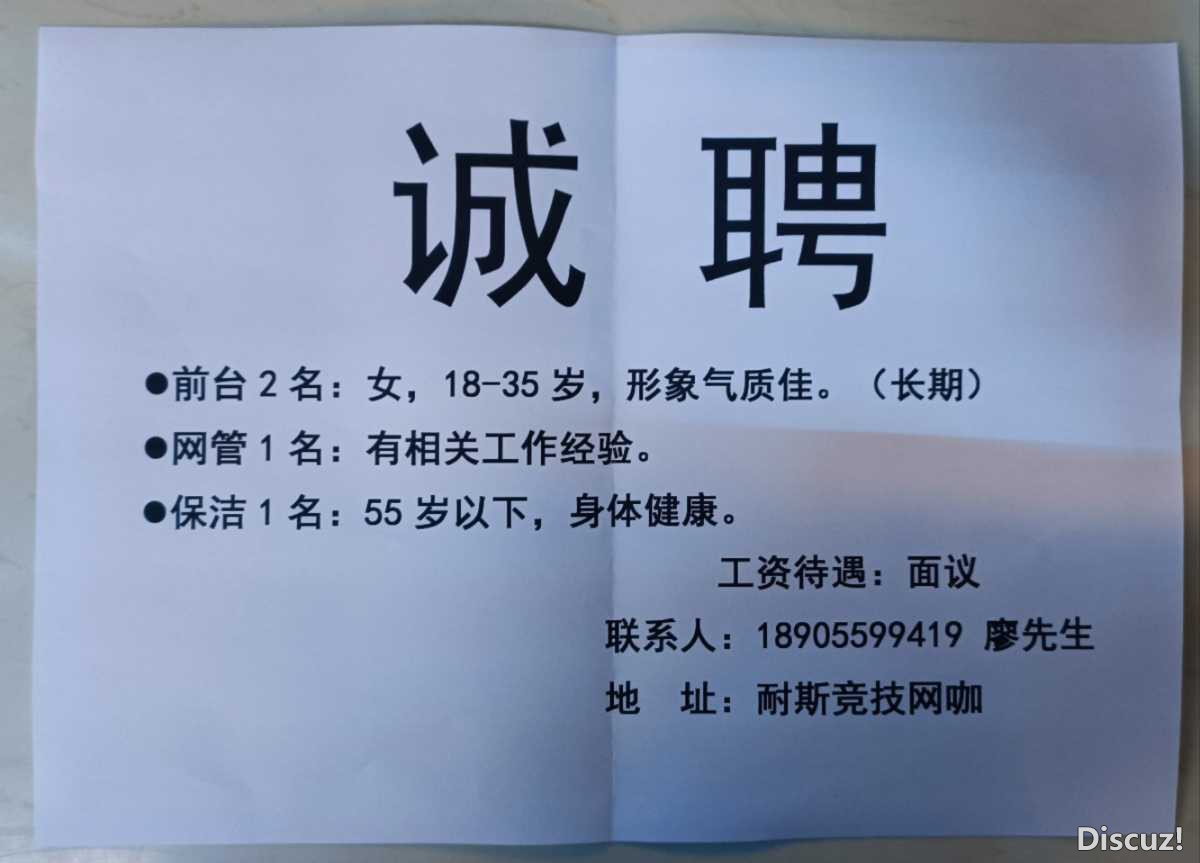 诚 聘
●前台2名：女，18-35岁，形象气质佳。（长期）
●网管1名：有相关工作经验。
●保洁1名：55岁以下，身体健康。
工资待遇：面议
联系人：18905599419 廖先生
地 址：耐斯竞技网咖
Discuz!